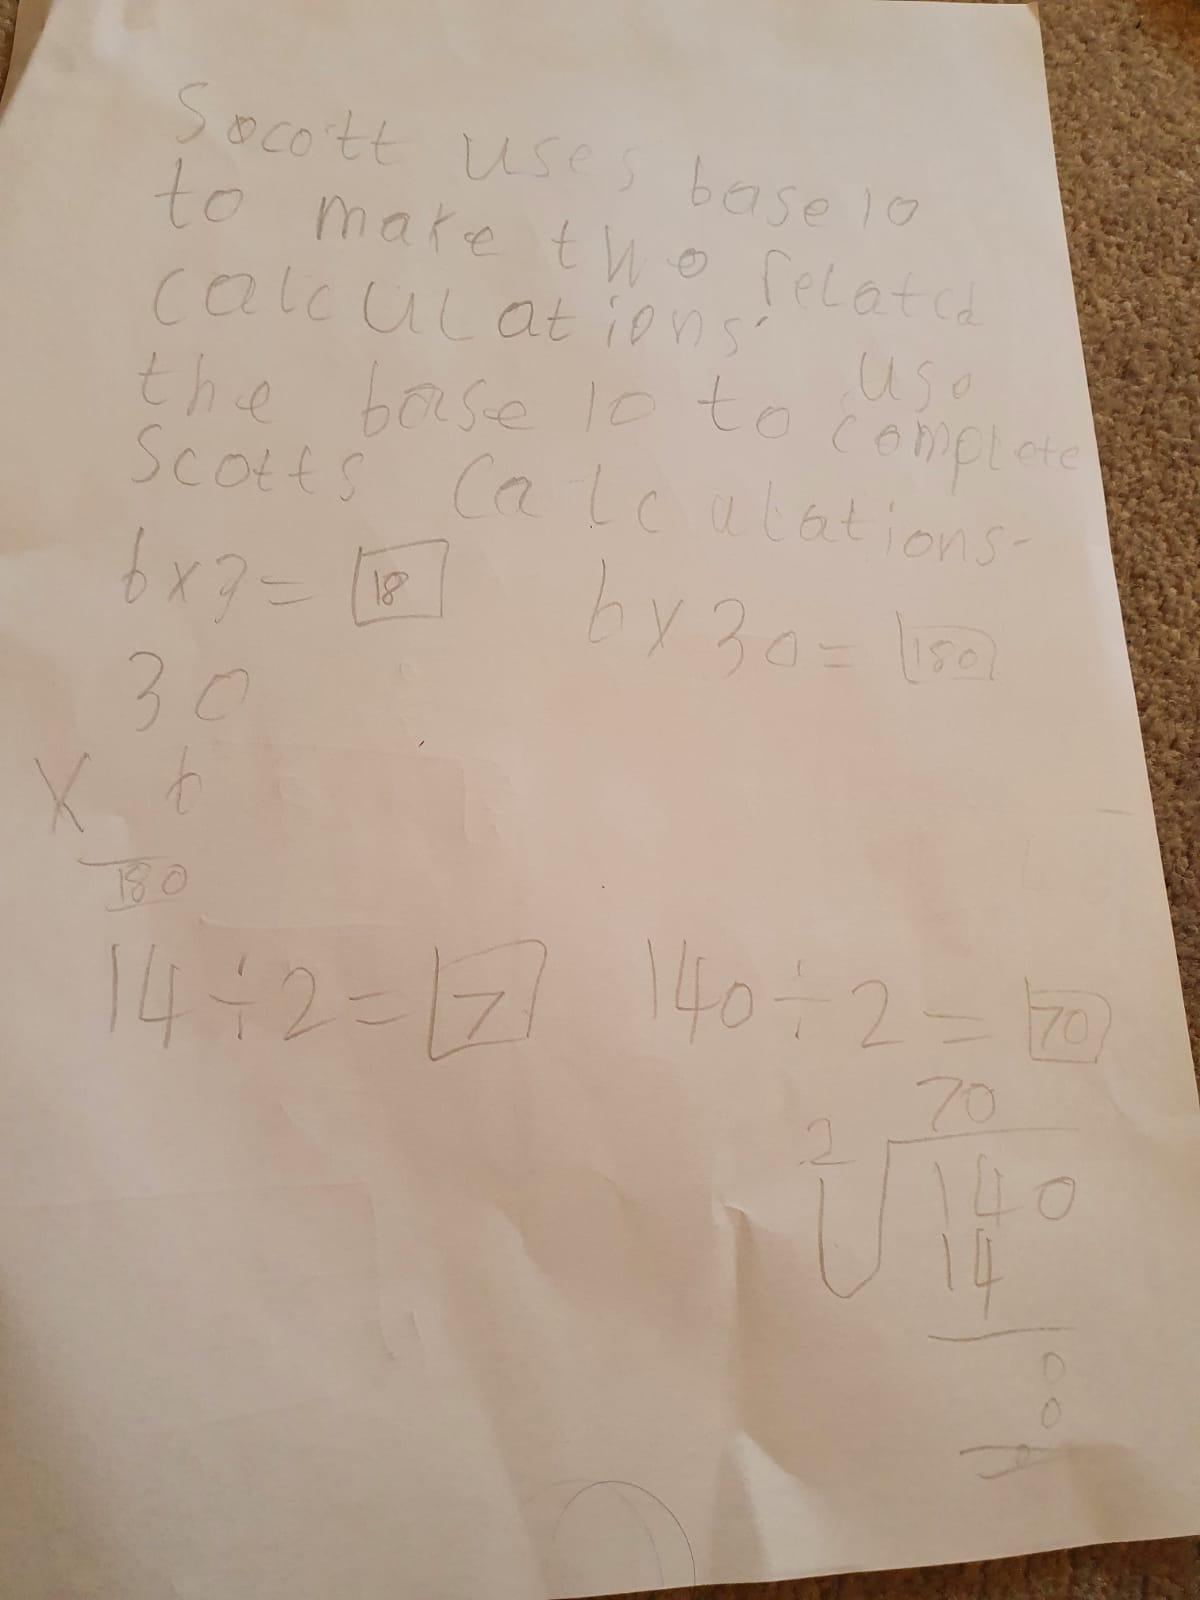 Socott uses base 10
to make two related
calculations. Use
the base 10 to complete
Scotts Calculations-
6x3= 18 6x30= 180
30
x 6
180
14÷2= 7 140÷2= 70
70
2 140
14
0
0